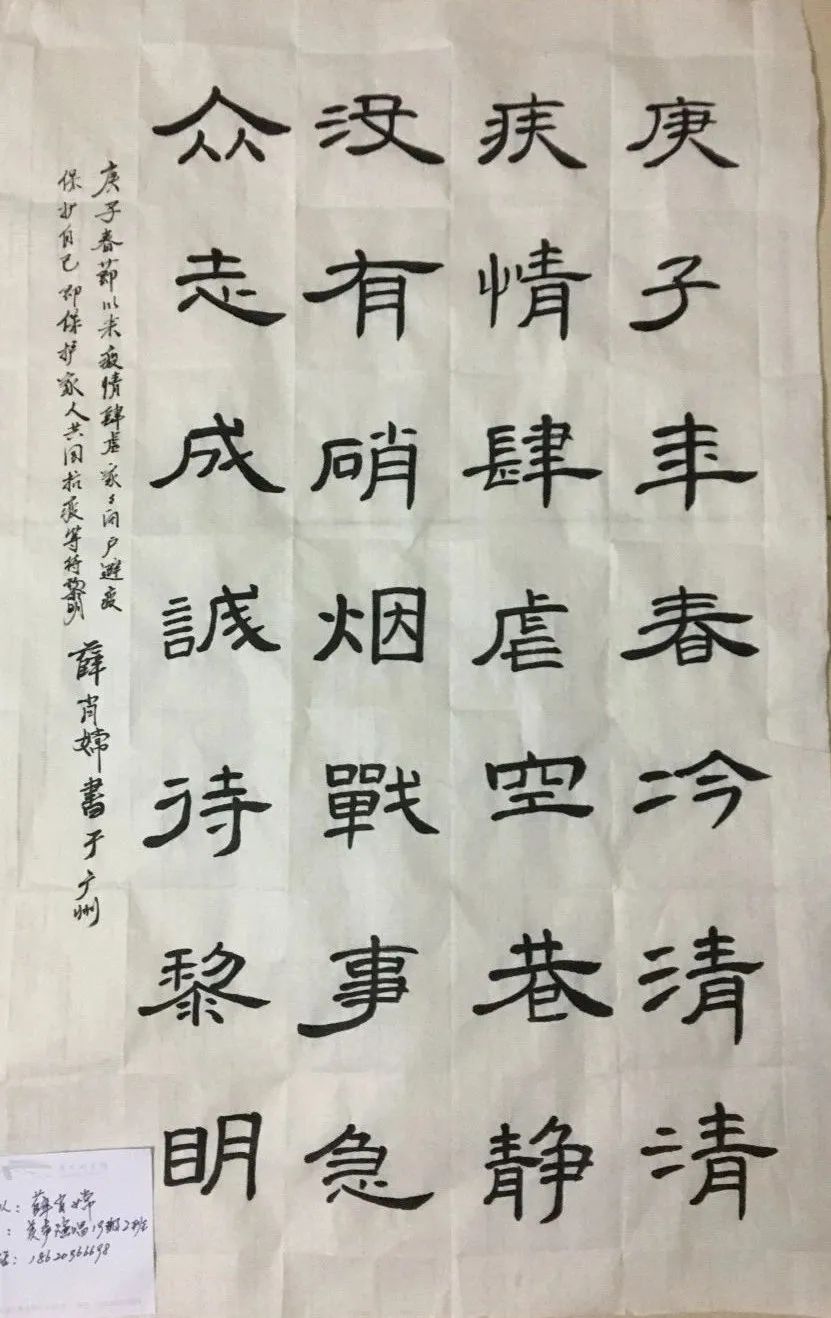 庚子年春冷清清
疾情肆虐空巷静
没有硝烟戰事急
众志成誠待黎明
庚子春節以来疫情肆虐家々闭户避疫
保护自己即保护家人共同抗疫等待黎明
薛肖嫦書于广州
薛肖嫦
声演唱19期2班
18620366698